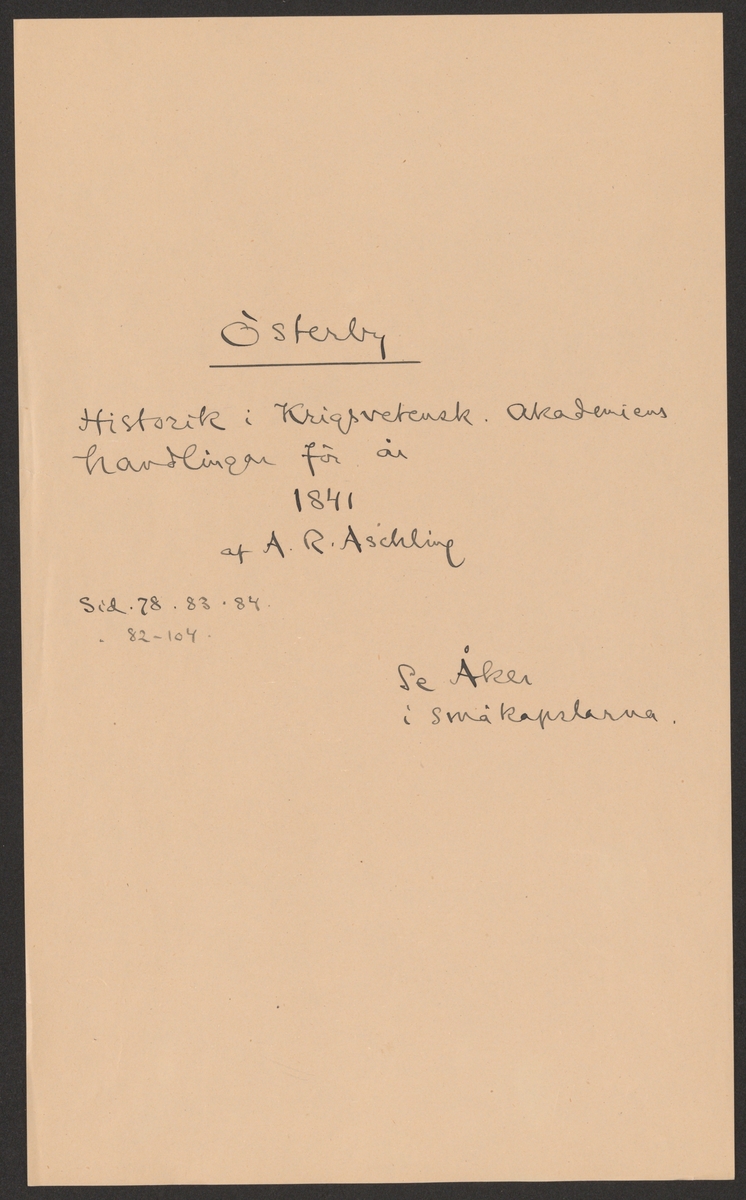 Österby
Historik i Krigsvetensk. Akademiens
handlingar för år
1841
af A. R. Aschling
Sid. 78. 83. 84.
. 82-104.
Se Åker
i småkapslarna.